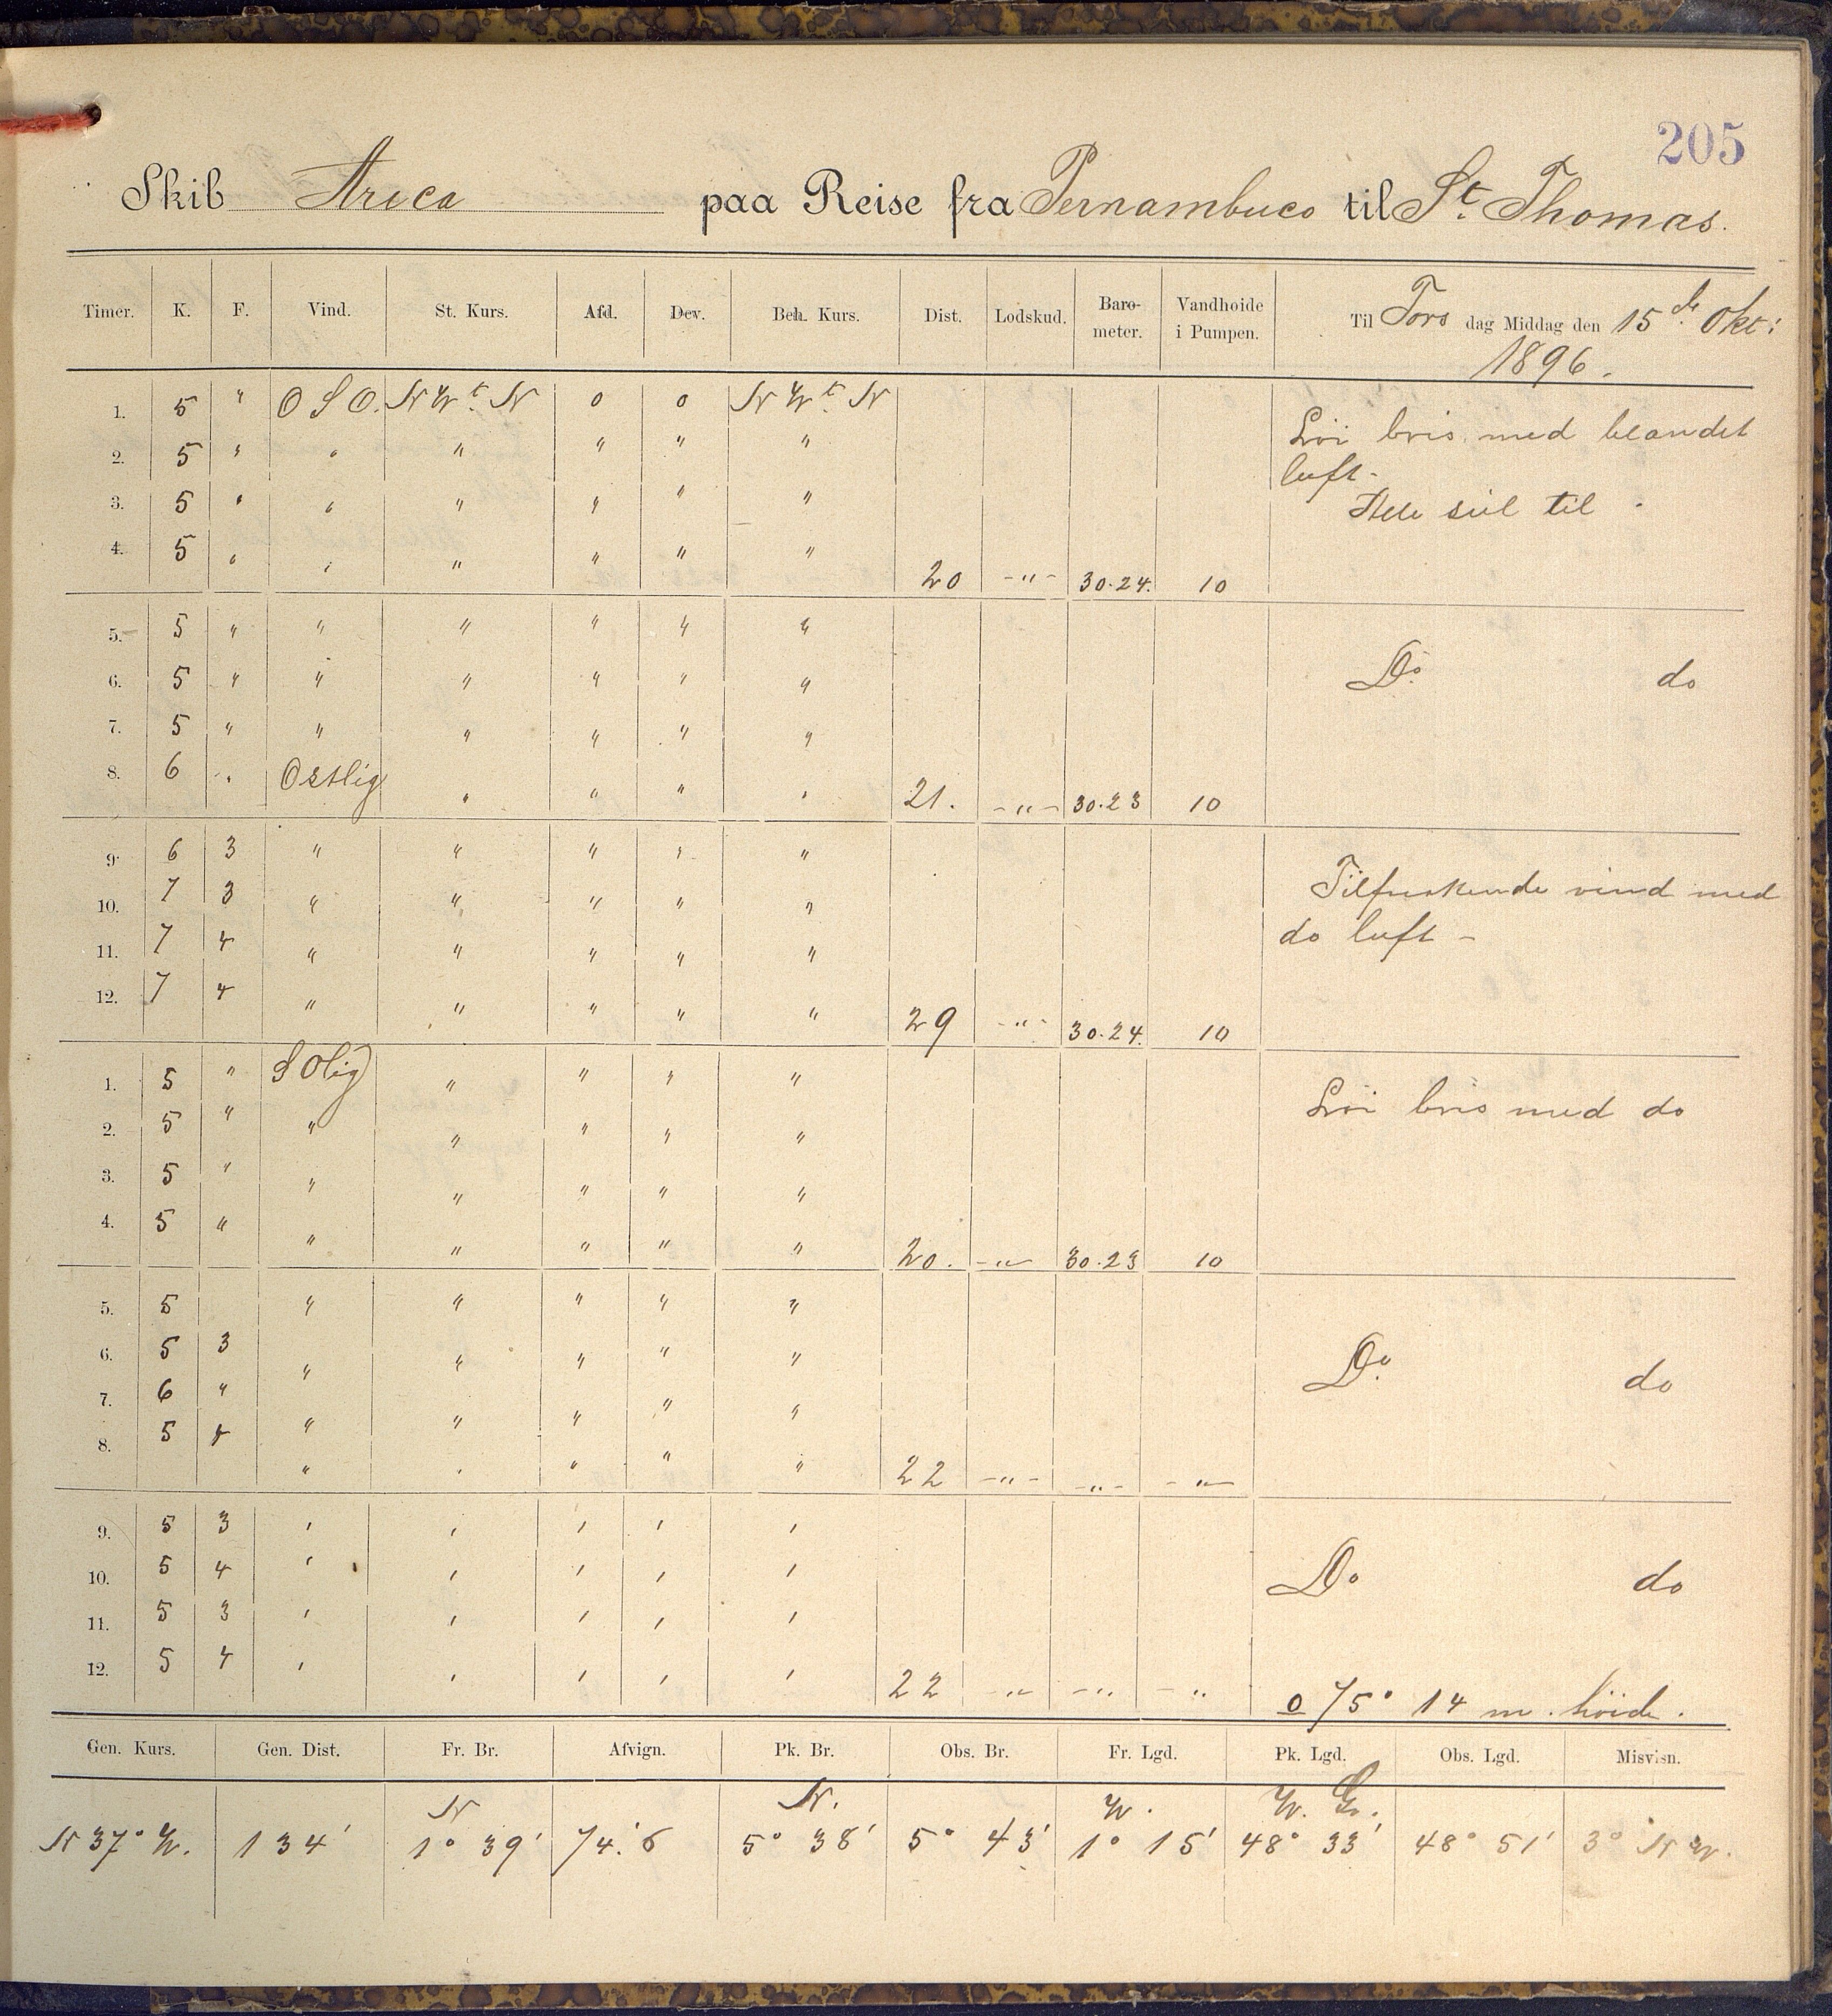 205
Skib Areca paa Reise fra Pernambuco til St. Thomas.
Timer. K. F. Vind. St. Kurs. Afd. Dev. Beh. Kurs. Dist. Lodskud. Baro-meter. Vandhoide i Pumpen. Til Tors dag Middag den 15de Okt: 1896.
1. 5 " O S O. N W t. N 0 0 N W t. N Löi bris med blandet
2. 5 " " " " " " luft -
3. 5 " " " " " " Alle seil til -
4. 5 " " " " " " 20 -"- 30.24. 10
5. 5 " " " " " "
6. 5 " " " " " " Do do
7. 5 " " " " " "
8. 6 " Ostlig " " " " 21. -"- 30.23 10
9. 6 3 " " " " "
10. 7 3 " " " " " Tilfriskende vind med
11. 7 4 " " " " " do luft -
12. 7 4 " " " " " 29 -"- 30.24. 10
1. 5 " S Olig " " " " Löi bris med do
2. 5 " " " " " "
3. 5 " " " " " "
4. 5 " " " " " " 20. -"- 30.23 10
5. 5 " " " " "
6. 5 3 " " " " " Do do
7. 6 " " " " " "
8. 5 4 " " " " " 22 -"- -"- -"-
9. 5 3 " " " " "
10. 5 4 " " " " " Do do
11. 5 3 " " " " "
12. 5 4 " " " " " 22 -"- -"- -"- 0 75° 14 m. höide.
Gen. Kurs. Gen. Dist. Fr. Br. Afvign. Pk. Br. Obs. Br. Fr. Lgd. Pk. Lgd. Obs. Lgd. Misvisn.
N N. W. W. Gr.
N 37° W. 134' 1° 39' 74.'6 5° 38' 5° 43' 1° 15' 48° 33' 48° 51' 3° N W.